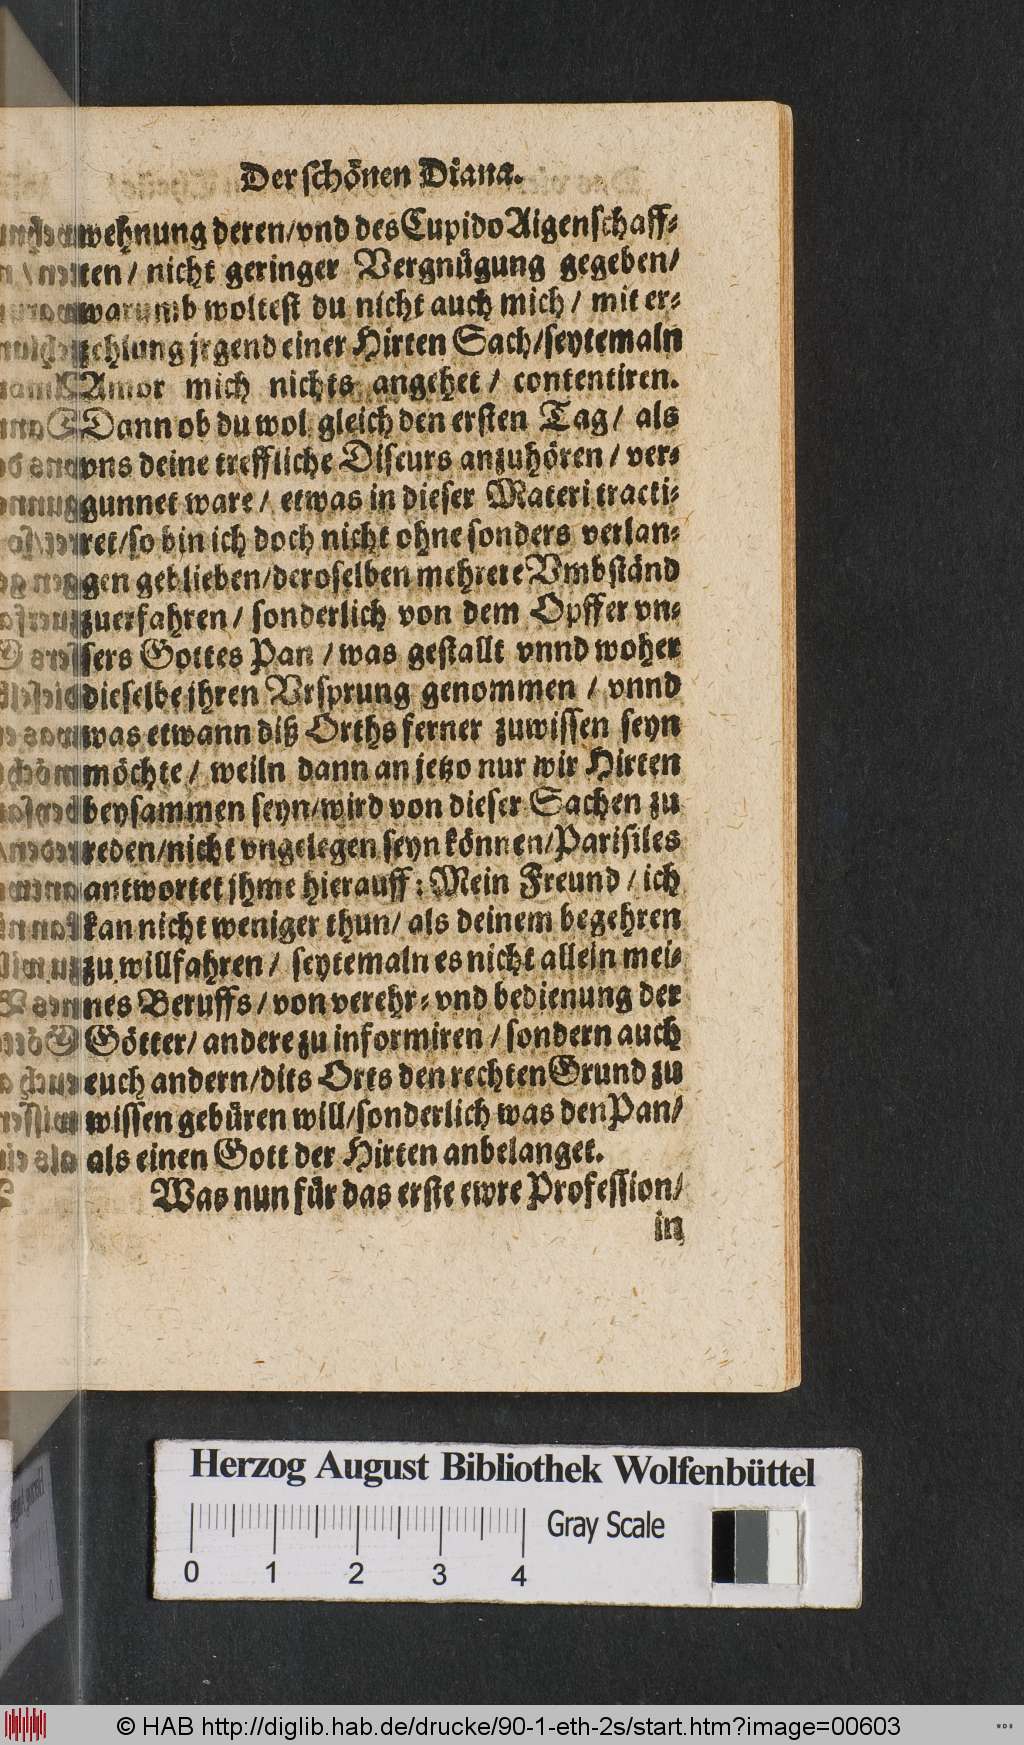 Der schönen Diana.
wehnung deren/vnd des Cupido Aigenschaff-
ten / nicht geringer Vergnügung gegeben/
warumb woltest du nicht auch mich / mit er-
zehlung jrgend einer Hirten Sach/seytemaln
Amor mich nichts angehet / contentiren.
Dann ob du wol gleich den ersten Tag / als
vns deine treffliche Discurs anzuhören / ver-
gunnet ware / etwas in dieser Materi tracti-
ret/so bin ich doch nicht ohne sonders verlan-
gen geblieben/deroselben mehrere Vmbständ
zuerfahren / sonderlich von dem Opffer vn-
sers Gottes Pan / was gestallt vnnd woher
dieselbe jhren Vrsprung genommen / vnnd
was etwann diß Orths ferner zuwissen seyn
möchte / weiln dann an jetzo nur wir Hirten
beysammen seyn/wird von dieser Sachen zu
reden/nicht vngelegen seyn können/Parisiles
antwortet jhme hierauff: Mein Freund / ich
kan nicht weniger thun/ als deinem begehren
zu willfahren / seytemaln es nicht allein mei-
nes Beruffs / von verehr- vnd bedienung der
Götter/ andere zu informiren / sondern auch
euch andern/dits Orts den rechten Grund zu
wissen gebüren will/sonderlich was den Pan/
als einen Gott der Hirten anbelanget.
Was nun für das erste ewre Profession/
in
Herzog August Bibliothek Wolfenbüttel
Gray Scale
0 1 2 3 4
© HAB http://diglib.hab.de/drucke/90-1-eth-2s/start.htm?image=00603